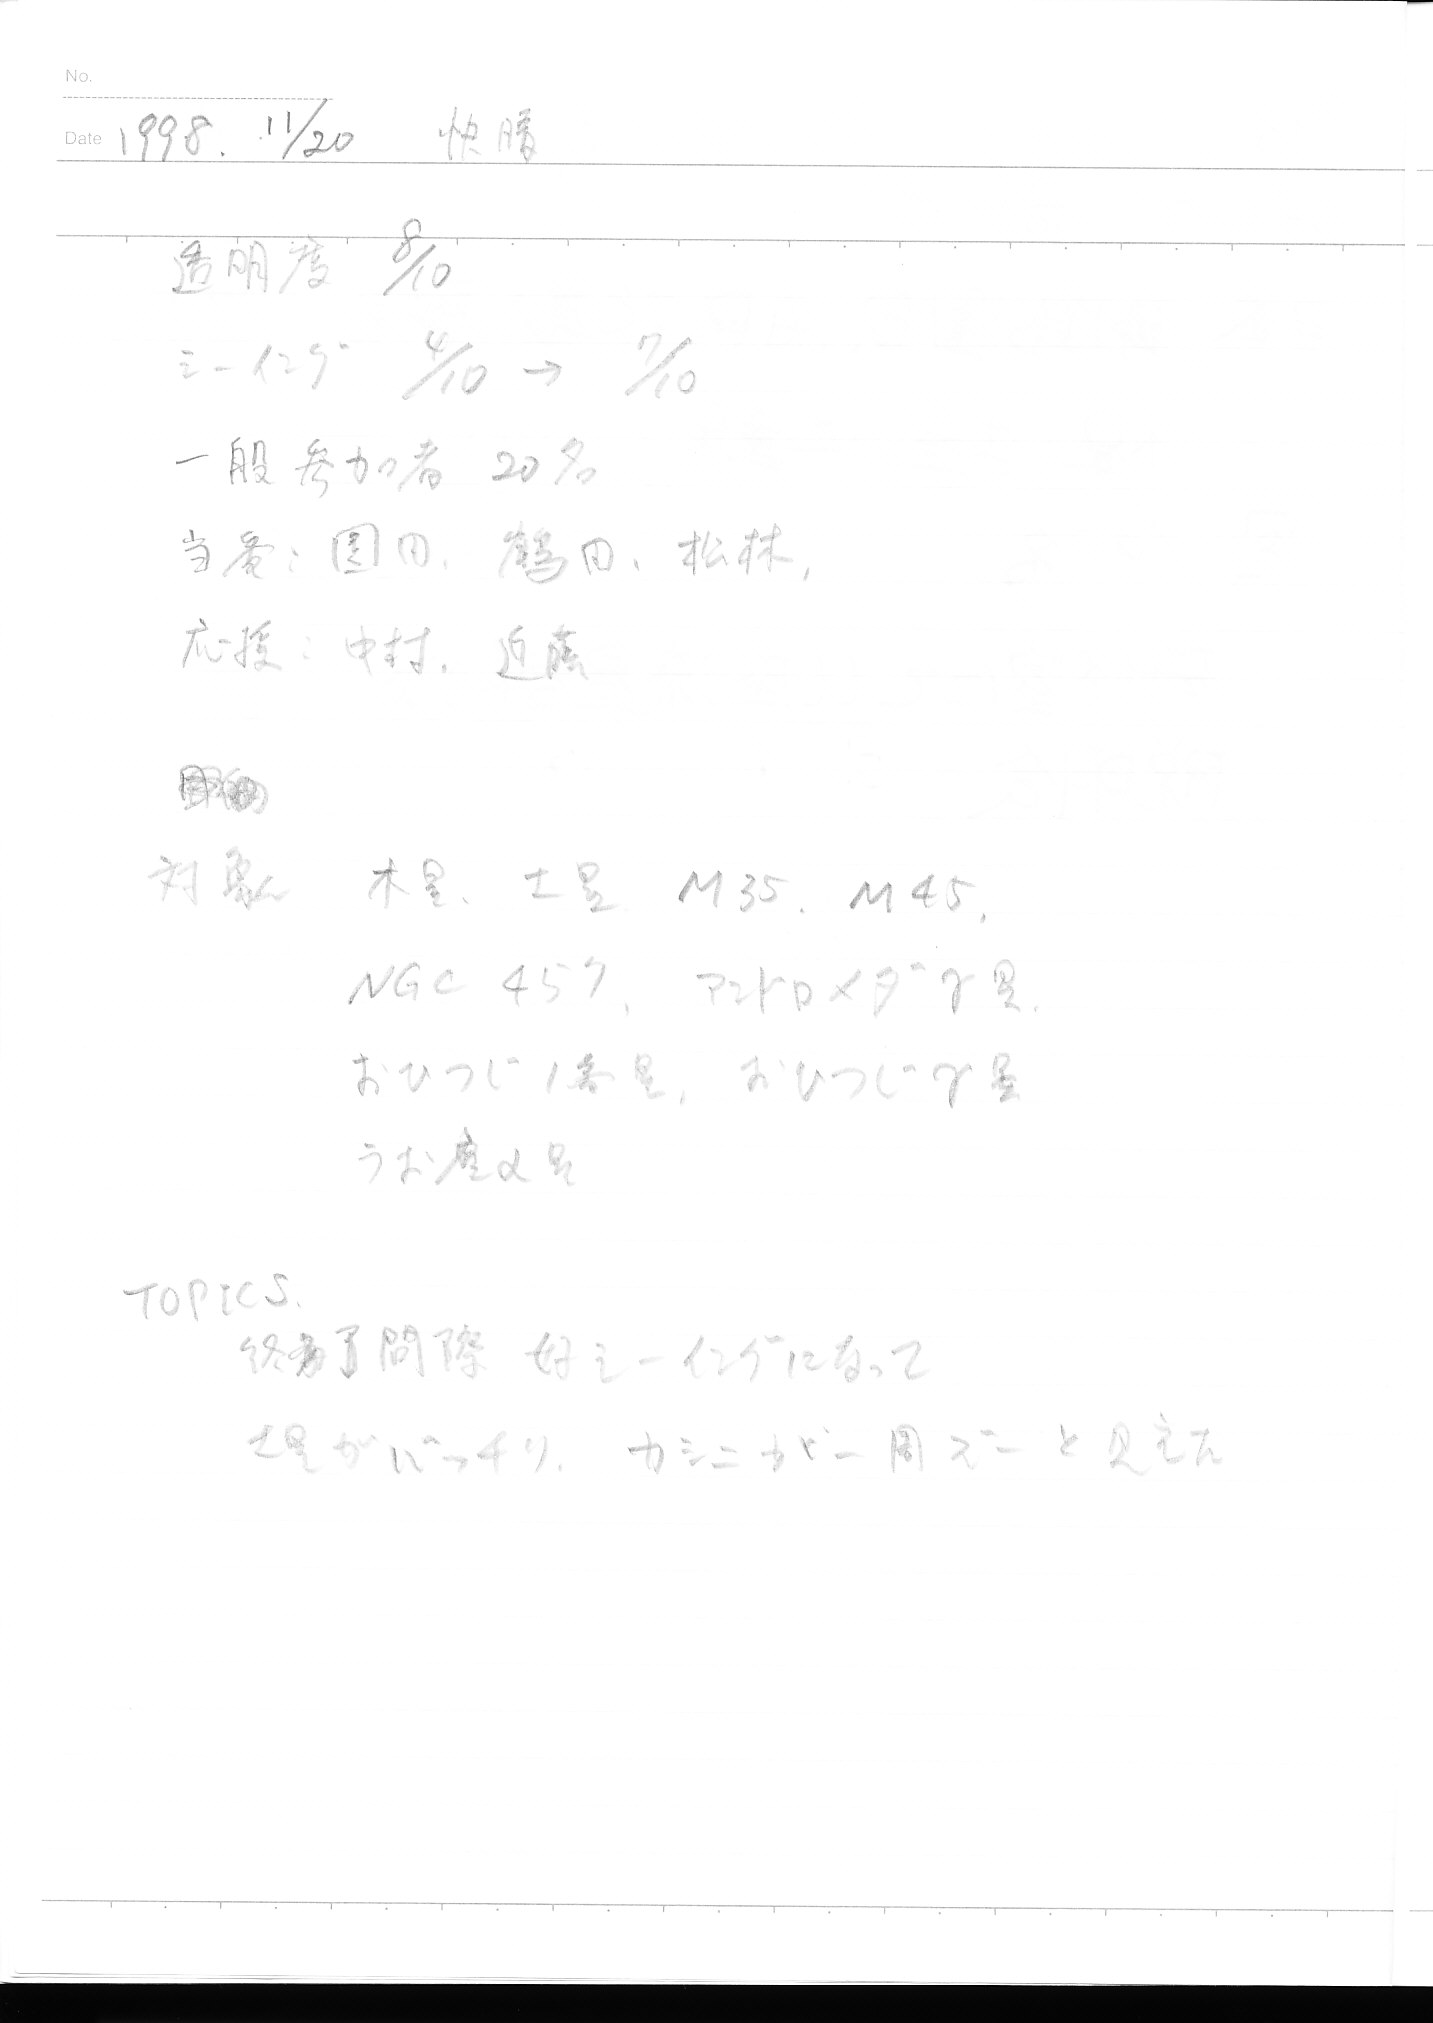 No.
Date 1998. 11/20 快晴
透明度 8/10
シーイング 4/10 → 7/10
一般参加者 20名
当番: 園田、鶴田、松林,
応援: 中村. 近藤
対象 木星、土星 M35. M45,
NGC 457, アンドロメダγ星.
おひつじ1番星, おひつじγ星
うお座α星
TOPICS.
終了間際 好シーイングになって
土星がばっちり. カシニが一周ズーと見えた